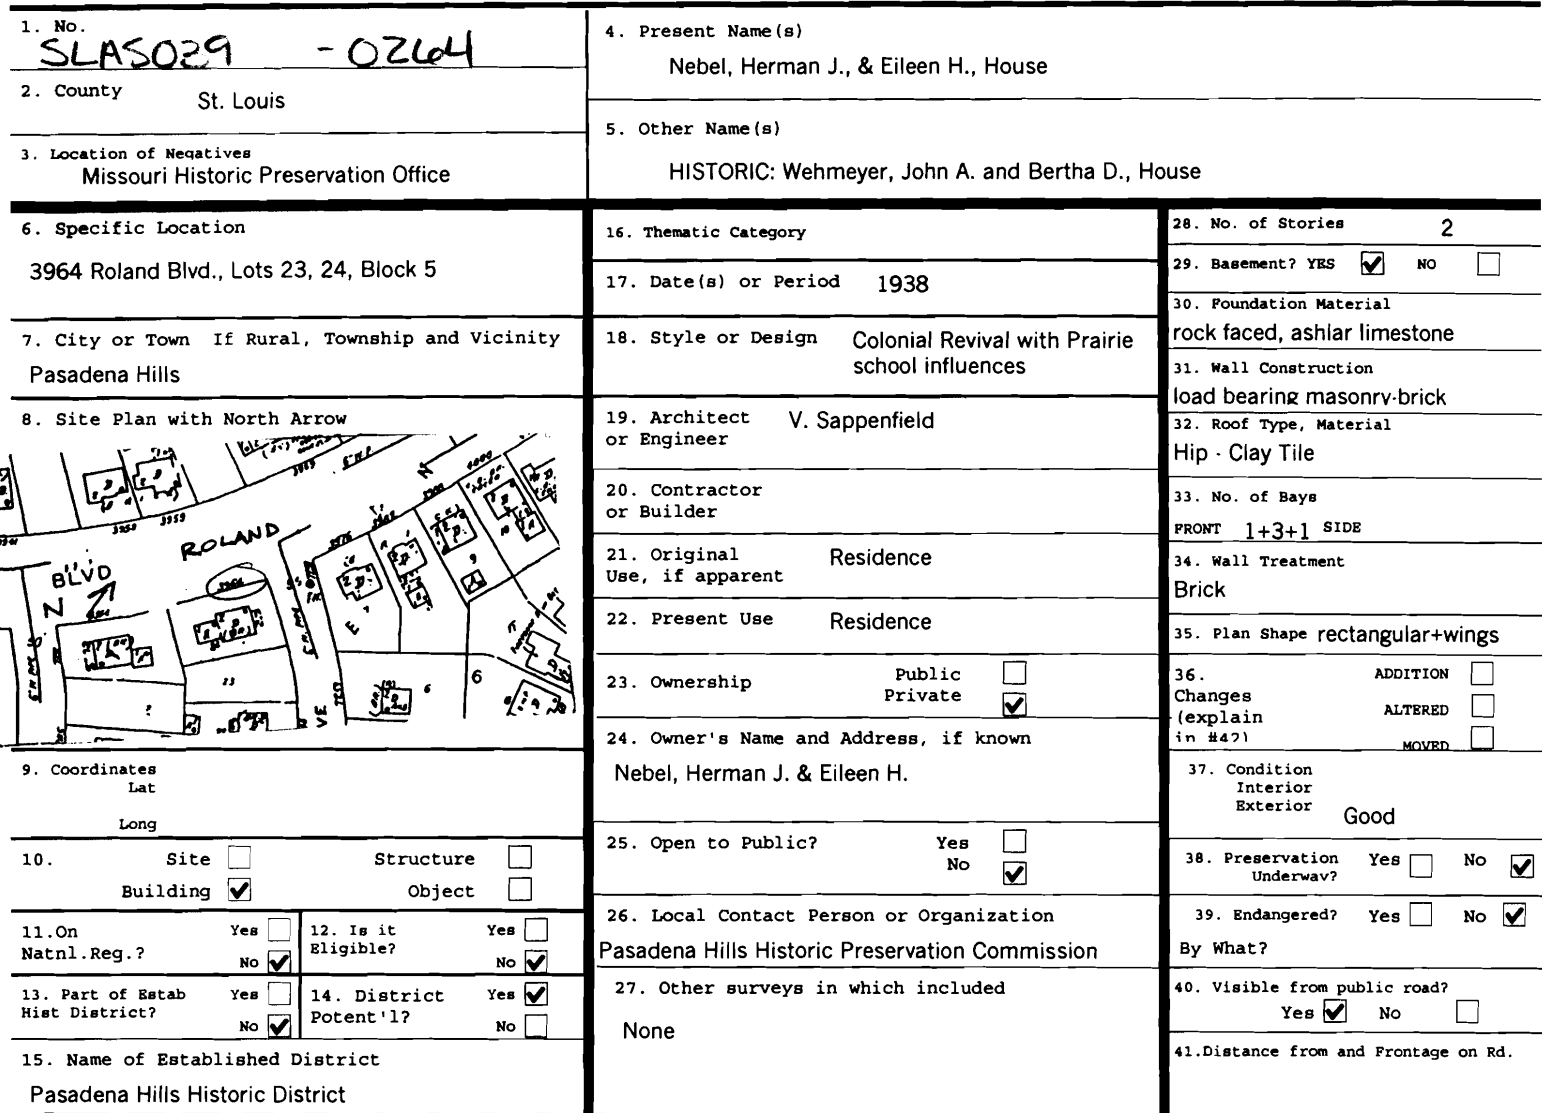 1. No.
SLAS029 -0264
2. County
St. Louis
3. Location of Negatives
Missouri Historic Preservation Office
4. Present Name(s)
Nebel, Herman J., & Eileen H., House
5. Other Name(s)
HISTORIC: Wehmeyer, John A. and Bertha D., House
6. Specific Location
3964 Roland Blvd., Lots 23, 24, Block 5
7. City or Town If Rural, Township and Vicinity
Pasadena Hills
8. Site Plan with North Arrow
ROLAND
BLVD
N
9. Coordinates
Lat
Long
10. Site Structure
Building Object
11.On Yes
Natnl.Reg.? No
12. Is it Yes
Eligible? No
13. Part of Estab Yes
Hist District? No
14. District Yes
Potent'l? No
15. Name of Established District
Pasadena Hills Historic District
16. Thematic Category
17. Date(s) or Period 1938
18. Style or Design Colonial Revival with Prairie
school influences
19. Architect V. Sappenfield
or Engineer
20. Contractor
or Builder
21. Original Residence
Use, if apparent
22. Present Use Residence
23. Ownership Public
Private
24. Owner's Name and Address, if known
Nebel, Herman J. & Eileen H.
25. Open to Public? Yes
No
26. Local Contact Person or Organization
Pasadena Hills Historic Preservation Commission
27. Other surveys in which included
None
28. No. of Stories 2
29. Basement? YES NO
30. Foundation Material
rock faced, ashlar limestone
31. Wall Construction
load bearing masonry-brick
32. Roof Type, Material
Hip - Clay Tile
33. No. of Bays
FRONT 1+3+1 SIDE
34. Wall Treatment
Brick
35. Plan Shape rectangular+wings
36. ADDITION
Changes
(explain ALTERED
in #42) MOVED
37. Condition
Interior
Exterior Good
38. Preservation Yes No
Underway?
39. Endangered? Yes No
By What?
40. Visible from public road?
Yes No
41.Distance from and Frontage on Rd.